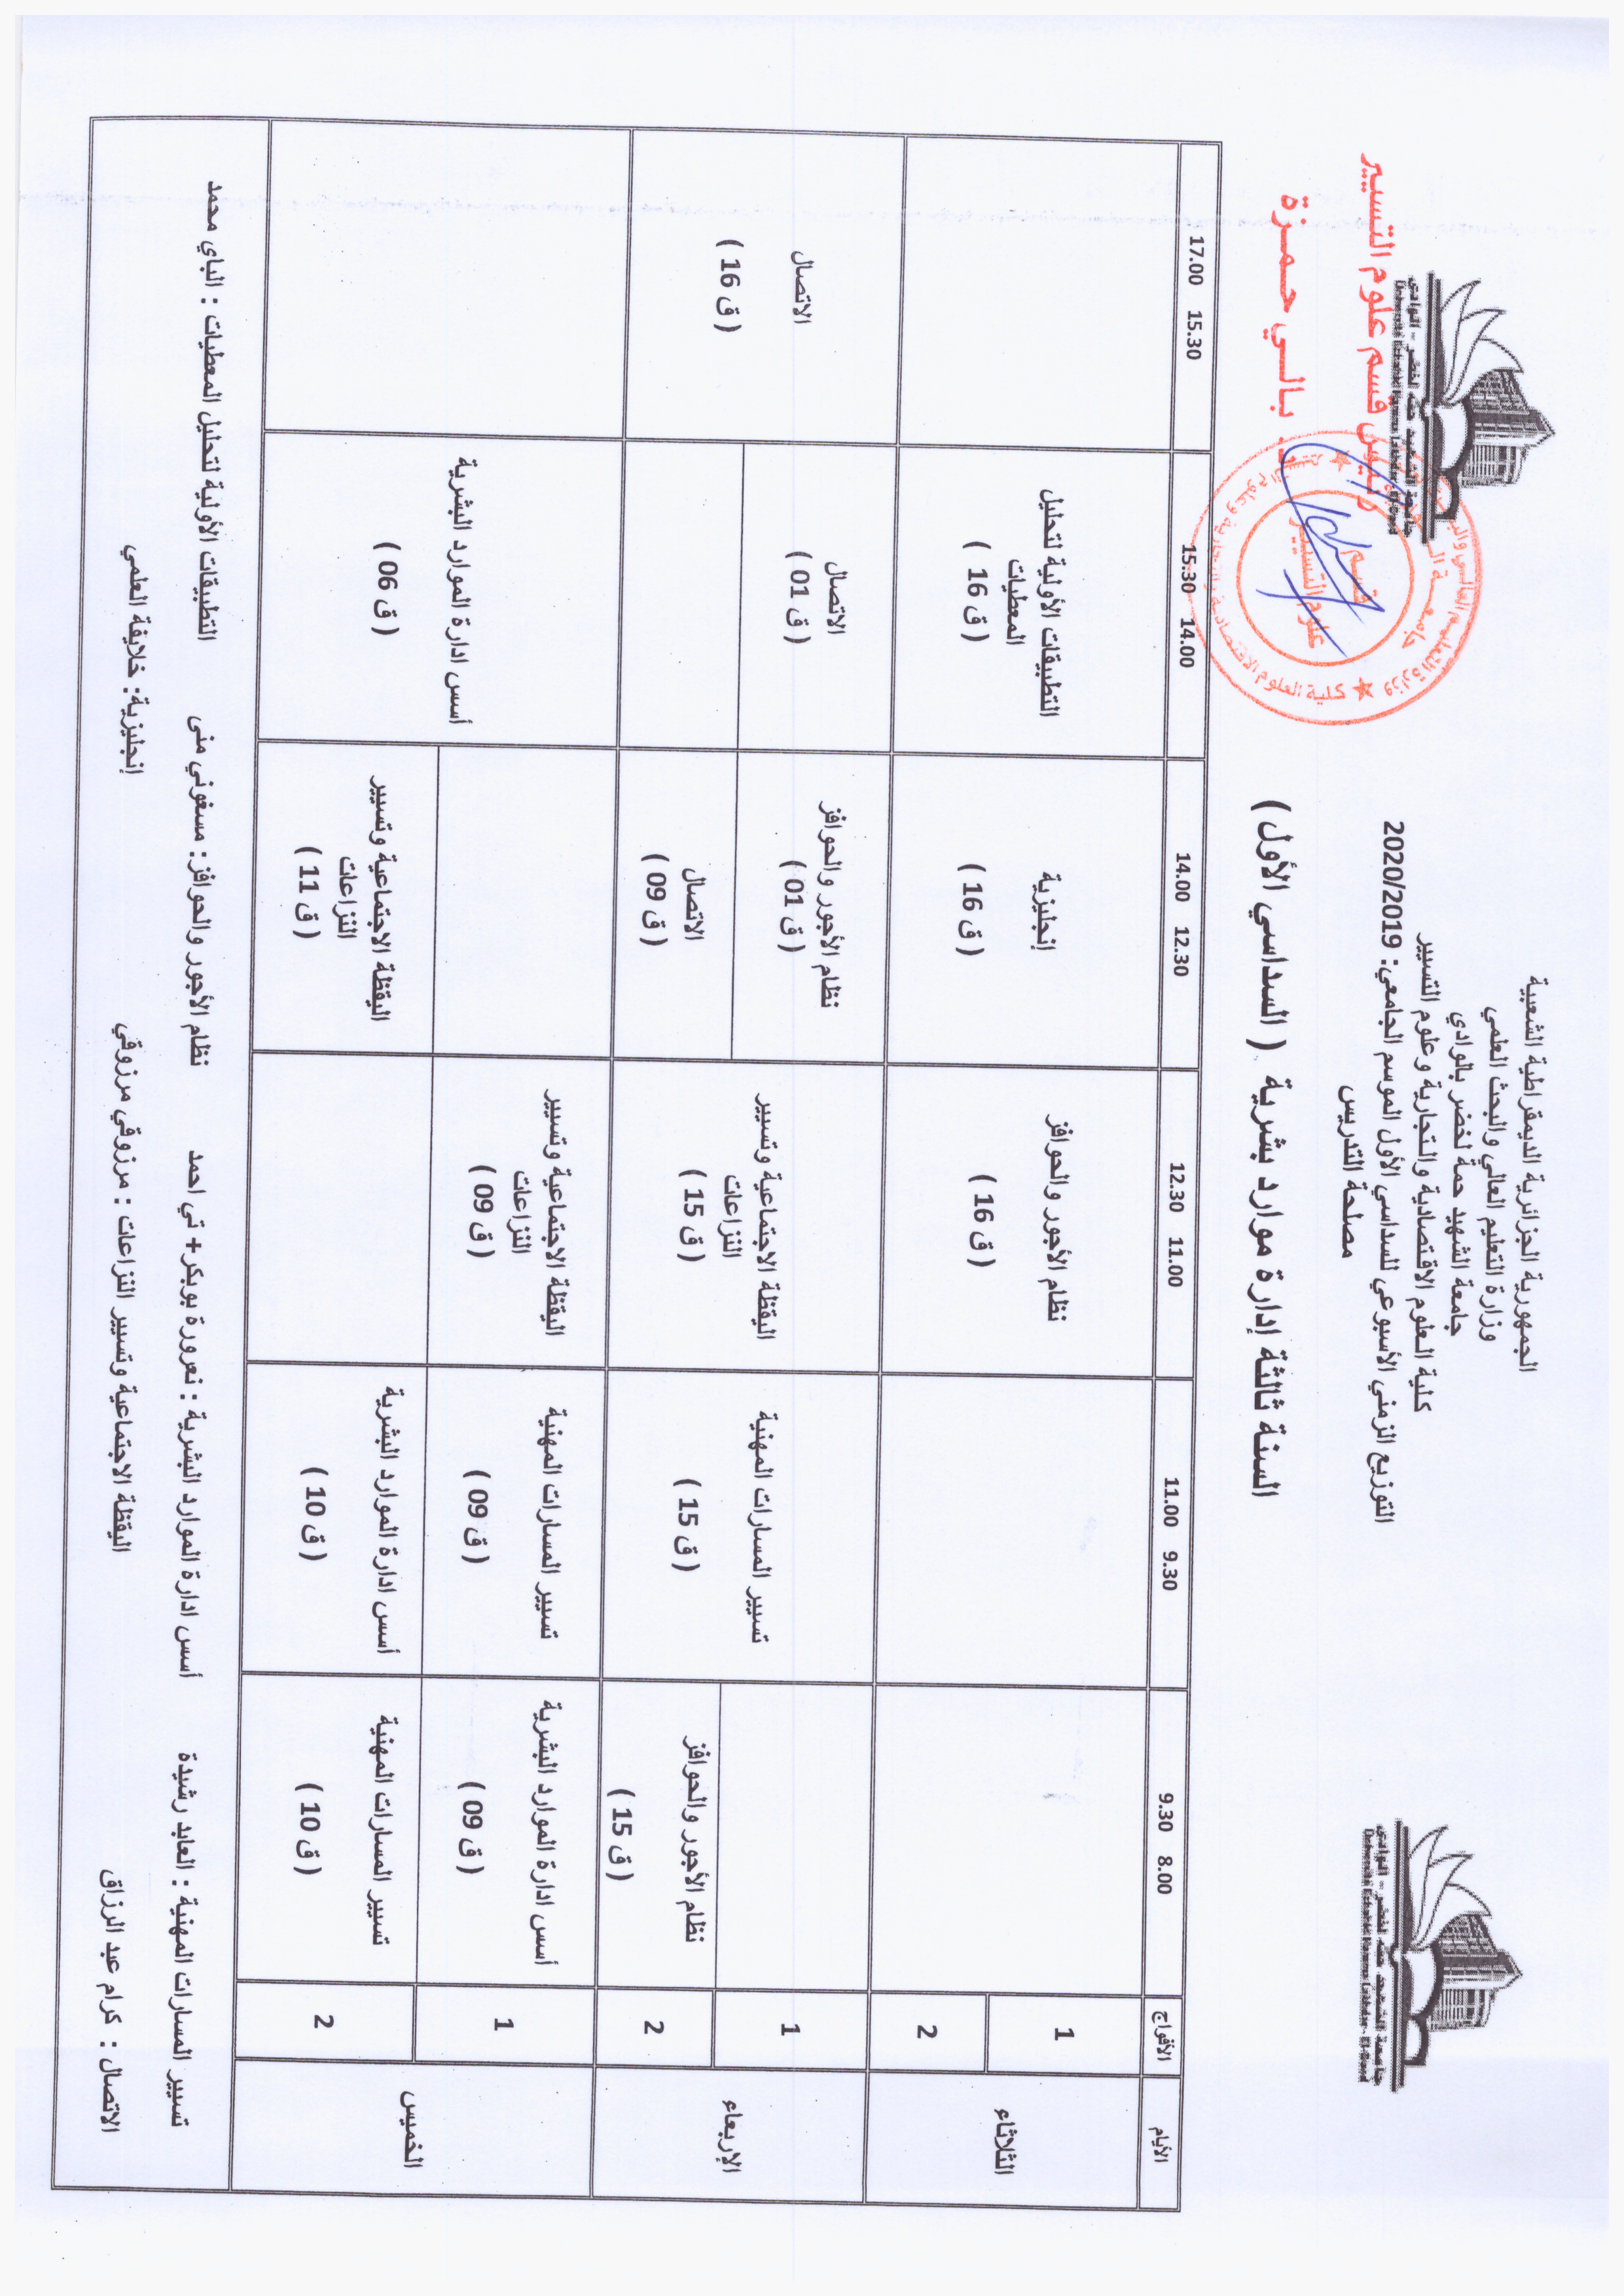 الجمهورية الجزائرية الديمقراطية الشعبية
وزارة التعليم العالي والبحث العلمي
جامعة الشهيد حمة لخضر بالوادي
كلية العلوم الاقتصادية والتجارية وعلوم التسيير
التوزيع الزمني الأسبوعي للسداسي الأول الموسم الجامعي: 2020/2019
مصلحة التدريس
جامعة الشهيد حمه لخضر - الوادي
Université Echahid Hamma Lakhdar - El-Oued
جامعة الشهيد حمه لخضر - الوادي
Université Echahid Hamma Lakhdar - El-Oued
رئيس قسم علوم التسيير
د. بالي حمزة
قسم
علوم التسيير
السنة ثالثة إدارة موارد بشرية ( السداسي الأول )
الأيام الأفواج 8.00 9.30 9.30 11.00 11.00 12.30 12.30 14.00 14.00 15.30 15.30 17.00
الثلاثاء
1
2
نظام الأجور والحوافز
( ق 16 )
إنجليزية
( ق 16 )
التطبيقات الأولية لتحليل
المعطيات
( ق 16 )
الإربعاء
1
2
نظام الأجور والحوافز
( ق 15 )
تسيير المسارات المهنية
( ق 15 )
اليقظة الاجتماعية وتسيير
النزاعات
( ق 15 )
نظام الأجور والحوافز
( ق 01 )
الاتصال
( ق 09 )
الاتصال
( ق 01 )
الاتصال
( ق 16 )
الخميس
1
أسس ادارة الموارد البشرية
( ق 09 )
تسيير المسارات المهنية
( ق 09 )
اليقظة الاجتماعية وتسيير
النزاعات
( ق 09 )
2
تسيير المسارات المهنية
( ق 10 )
أسس ادارة الموارد البشرية
( ق 10 )
اليقظة الاجتماعية وتسيير
النزاعات
( ق 11 )
أسس ادارة الموارد البشرية
( ق 06 )
تسيير المسارات المهنية : العابد رشيدة أسس ادارة الموارد البشرية : نعرورة بوبكر+ تي احمد نظام الأجور والحوافز: مسغوني منى التطبيقات الأولية لتحليل المعطيات : الباي محمد
الاتصال : كرام عبد الرزاق اليقظة الاجتماعية وتسيير النزاعات : مرزوقي مرزوقي إنجليزية: خلايفة العلمي